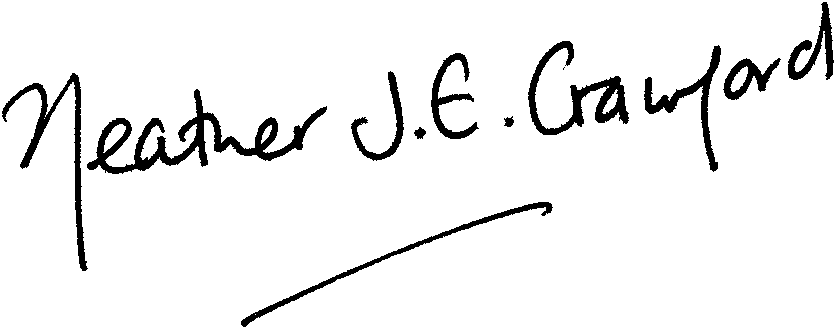 Heather J.E. Crawford